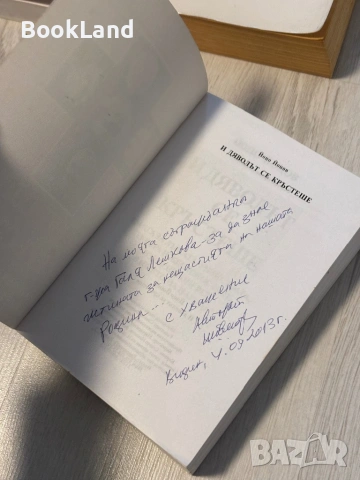 BookLand
Йото Йовов
И ДЯВОЛЪТ СЕ КРЪСТЕШЕ
На моята съгражданка
г-жа Галя Лешкова - за да знае
истината за нещастията на нашата
Родина...
с уважение
Авторът
Видин, 4.09.2013г.
BAZAR
.bg